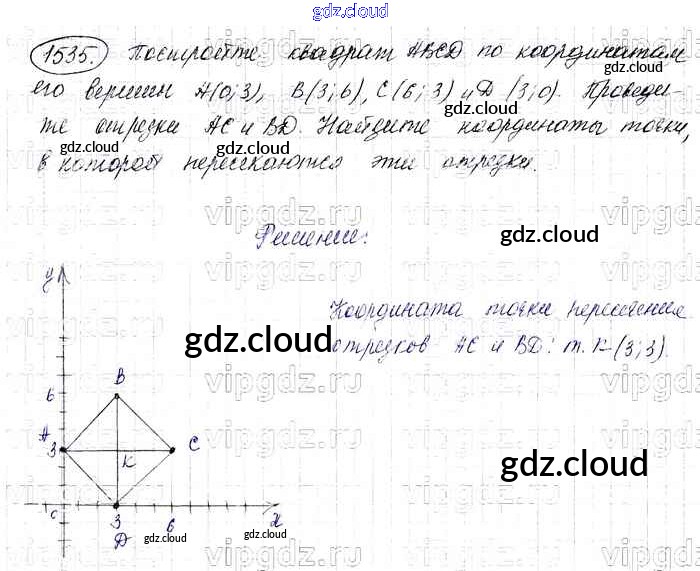 gdz.cloud
1535. Постройте квадрат ABCD по координатам
его вершин A(0;3), B(3;6), C(6;3) и D(3;0). Проведи-
gdz.cloud
те отрезки AC и BD. Найдите координаты точки,
gdz.cloud gdz.cloud
в которой пересекаются эти отрезки.
vipgdz.ru vipgdz.ru vipgdz.ru
Решение:
gdz.cloud
y
Координата точки пересечения
отрезков AC и BD: т. K-(3;3).
gdz.cloud
vipgdz.ru vipgdz.ru vipgdz.ru
B
6
A
C
3
K
gdz.cloud
gdz.cloud
0
3
6
x
D
gdz.cloud gdz.cloud